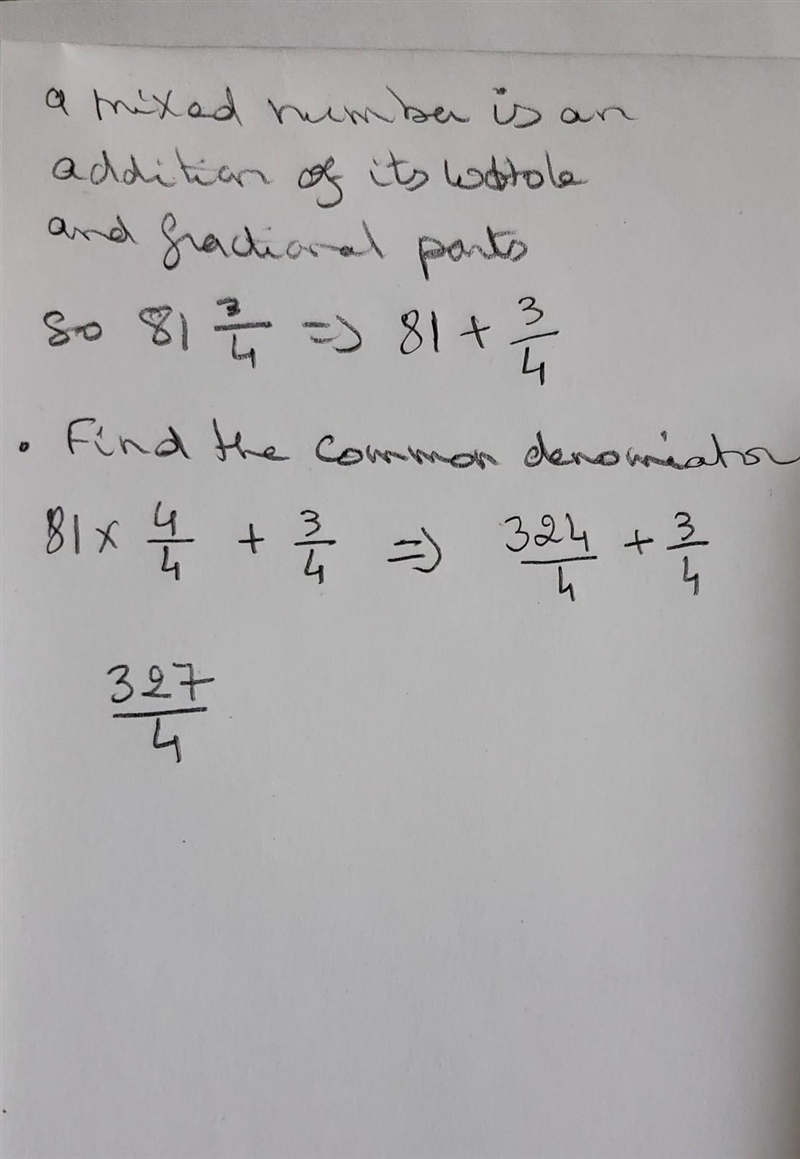 a mixed number is an
addition of its whole
and fractional parts
So 81 3/4 => 81 + 3/4
. Find the common denominator
81 x 4/4 + 3/4 => 324/4 + 3/4
327/4